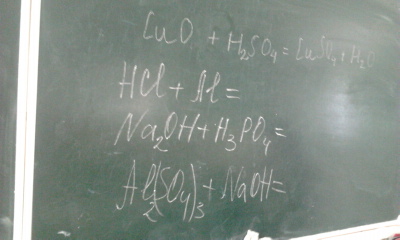 CuO + H₂SO₄ = CuSO₄ + H₂O
HCl + Al =
Na₂OH + H₃PO₄ =
Al₂(SO₄)₃ + NaOH =